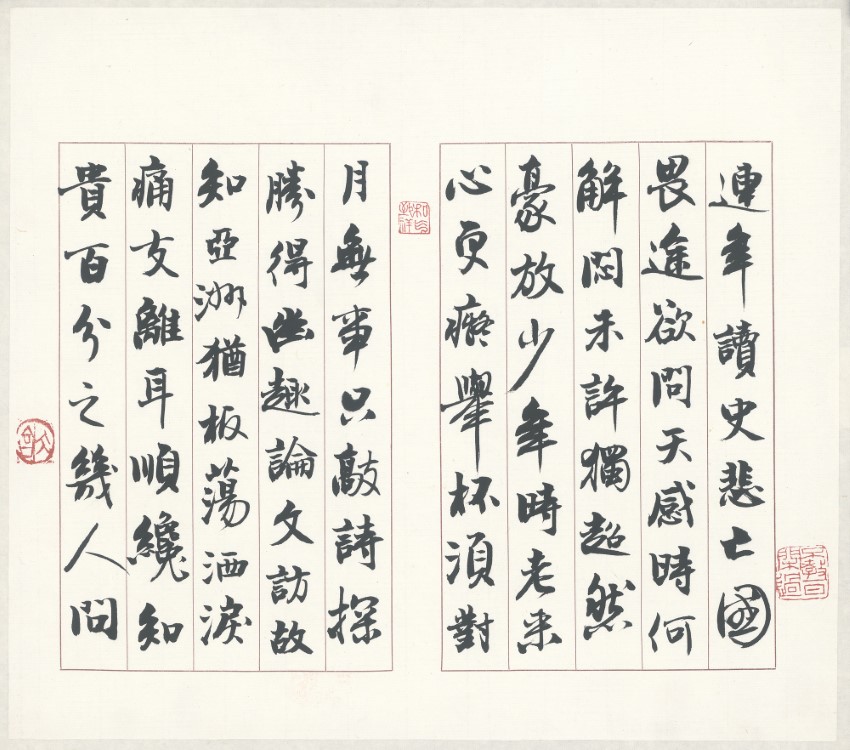 連年讀史悲亡國
畏途欲問天感時何
解悶未許獨超然
豪放少年時老來
心更癡舉杯須對
月無事只敲詩探
勝得幽趣論文訪故
知亞洲猶板蕩洒淚
痛支離耳順纔知
貴百分之幾人問